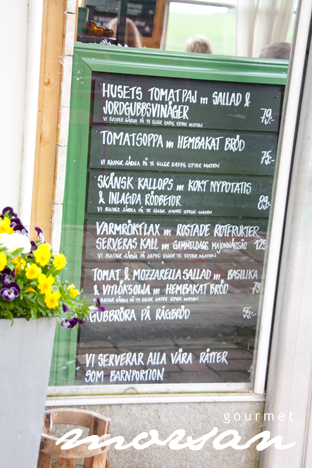 HUSETS TOMATPAJ m SALLAD &
JORDGUBBSVINÄGER 79:-
VI BJUDER GÄRNA PÅ TE ELLER KAFFE EFTER MATEN
TOMATSOPPA m HEMBAKAT BRÖD
75:-
VI BJUDER GÄRNA PÅ TE ELLER KAFFE EFTER MATEN
SKÅNSK KALLOPS m KOKT NYPOTATIS
& INLAGDA RÖDBETOR 89:-
VI BJUDER GÄRNA PÅ TE ELLER KAFFE EFTER MATEN
VARMRÖKTLAX m ROSTADE ROTFRUKTER
SERVERAS KALL m GAMMELDAGS MAJONNÄSSÅS 125
VI BJUDER GÄRNA PÅ TE ELLER KAFFE EFTER MATEN
TOMAT & MOZZARELLA SALLAD m BASILIKA
& VITLÖKSOLJA m HEMBAKAT BRÖD
VI BJUDER GÄRNA PÅ TE ELLER KAFFE EFTER MATEN
GUBBRÖRA PÅ RÅGBRÖD 55:-
VI SERVERAR ALLA VÅRA RÄTTER
SOM BARNPORTION
gourmet
morsan